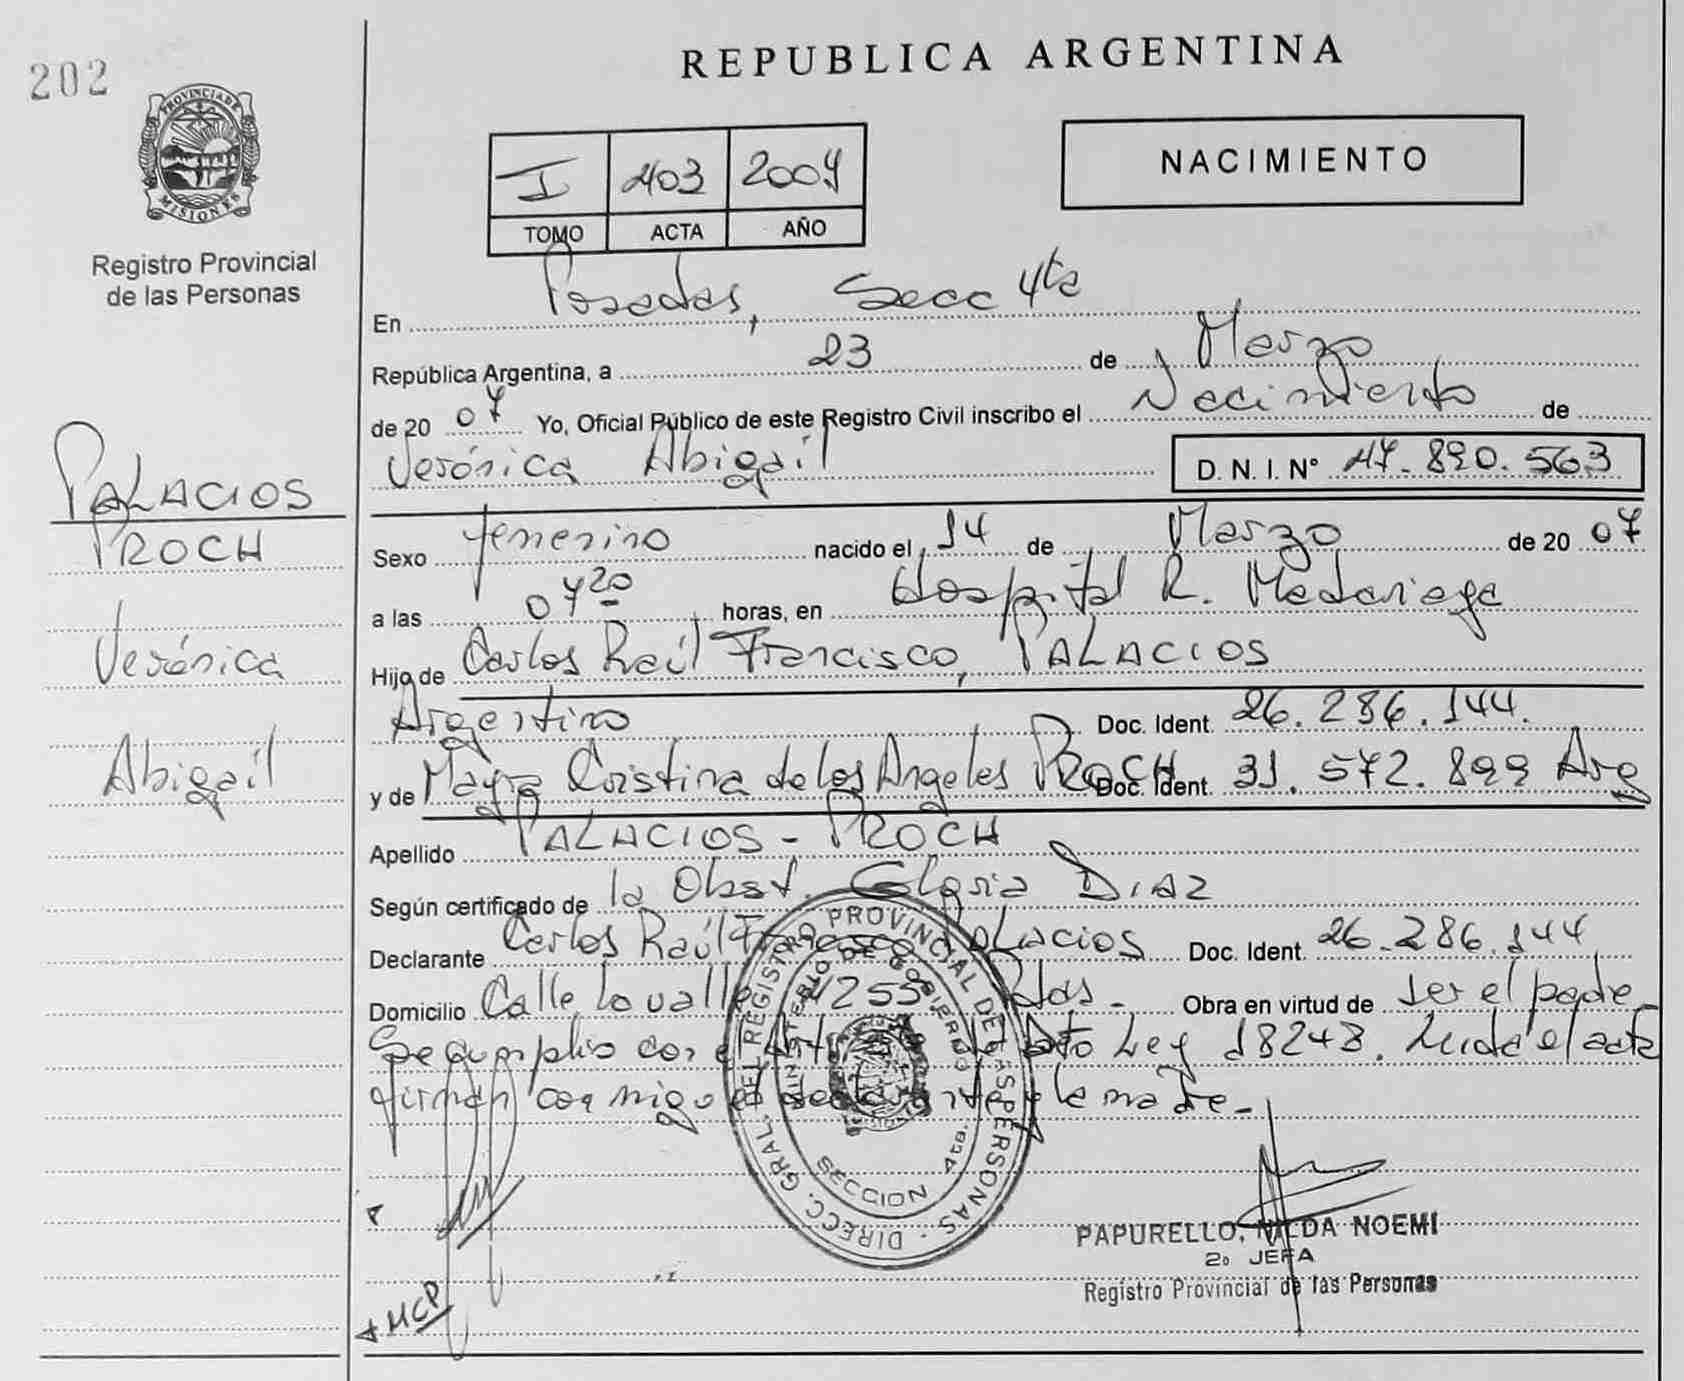 202
REPUBLICA ARGENTINA
PROVINCIA DE MISIONES
Registro Provincial
de las Personas
I 403 2007
TOMO ACTA AÑO
NACIMIENTO
En Posadas, Secc 4ta
República Argentina, a 23 de Marzo
de 20 07 Yo, Oficial Público de este Registro Civil inscribo el Nacimiento de
Verónica Abigaíl D. N. I. N° 47.890.563
PALACIOS
PROCH
Verónica
Abigaíl
Sexo femenino nacido el 14 de Marzo de 20 07
a las 07 20 horas, en Hospital R. Madariaga
Hijo de Carlos Raúl Francisco, PALACIOS
Argentino Doc. Ident. 26.286.144.
y de Mayra Cristina de los Angeles PROCH Doc. Ident. 31.572.899 Arg
Apellido PALACIOS - PROCH
Según certificado de la Obst. Gloria DIAZ
Declarante Carlos Raúl Francisco Palacios Doc. Ident. 26.286.144
Domicilio Calle Lavalle 4255 Pdas - Obra en virtud de ser el padre
Se cumplió con el Art Dto Ley 18248. Leida el acta
firman conmigo el declarante y la madre -
DIRECC. GRAL. DEL REGISTRO PROVINCIAL DE LAS PERSONAS
MINISTERIO DE GOBIERNO
SECCION 4ta.
PAPURELLO, NILDA NOEMI
2º JEFA
Registro Provincial de las Personas
MCP